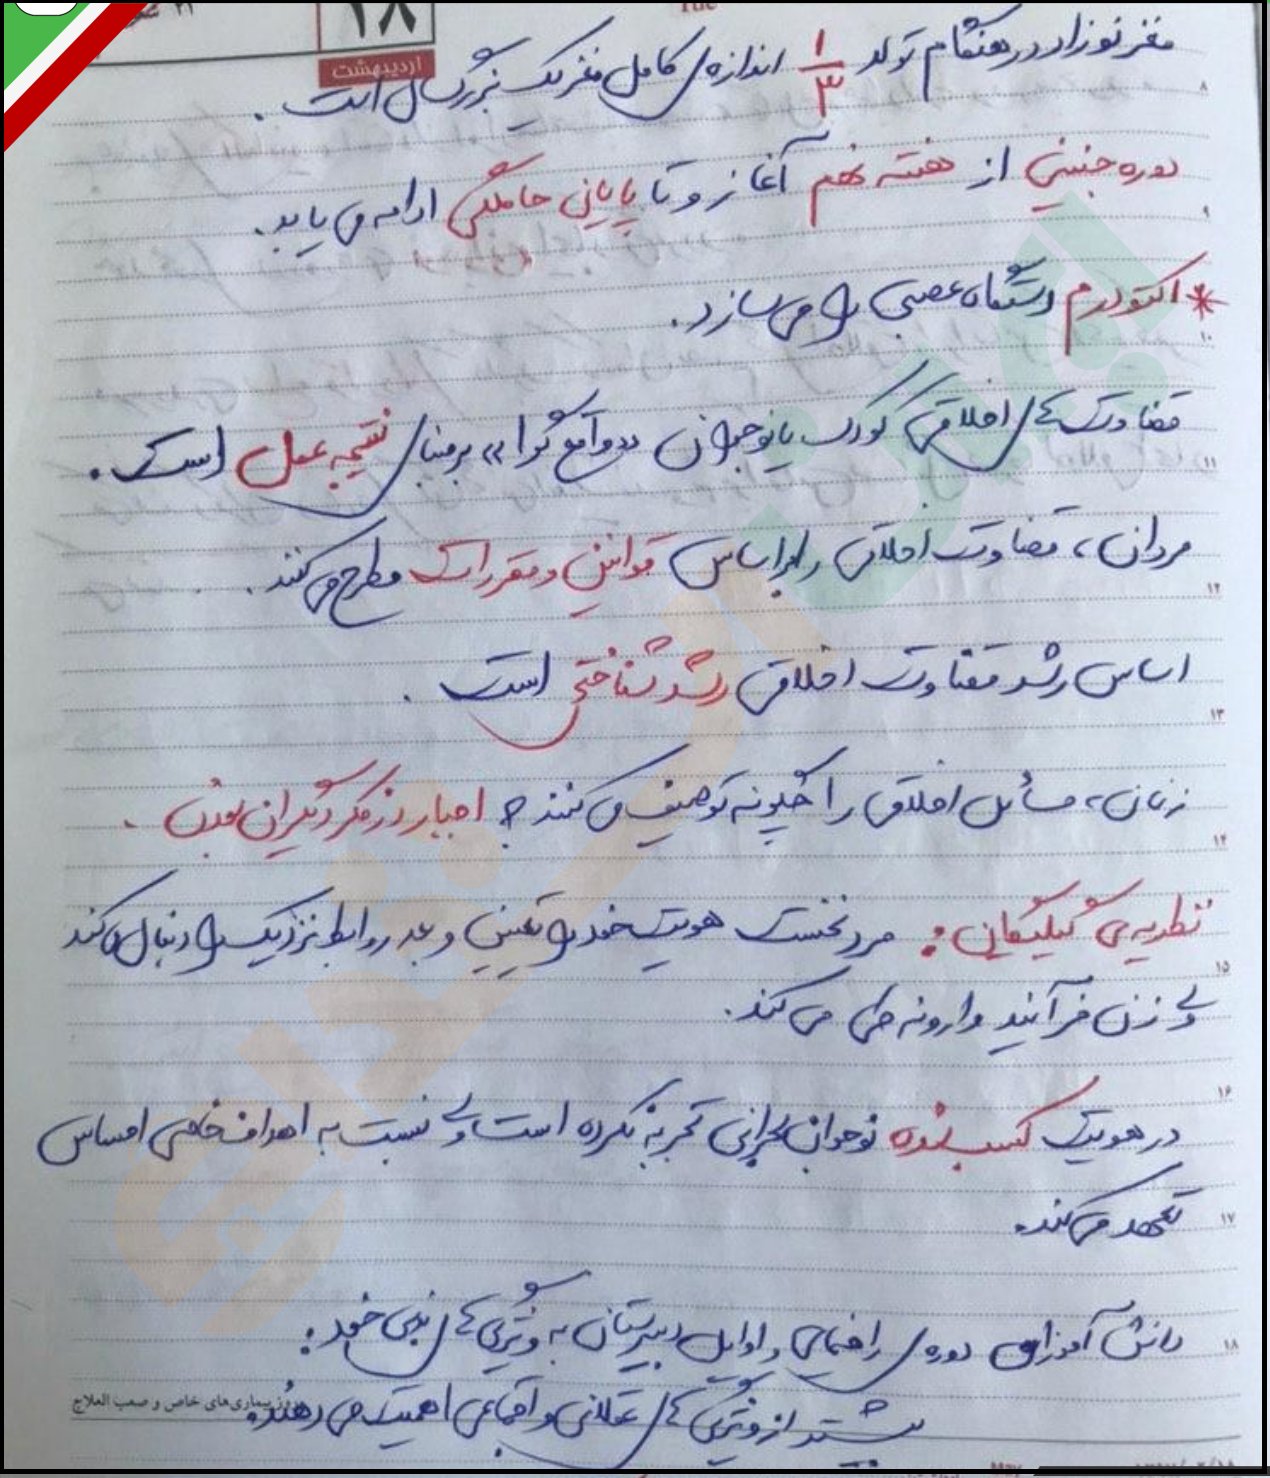 ۱۸
اردیبهشت
مغز نوزاد در هنگام تولد ۱/۳ اندازه‌ی کامل مغز یک بزرگسال است.
۸
دوره جنینی از هفته نهم آغاز و تا پایان حاملگی ادامه می یابد.
۹
* اکتودرم دستگاه عصبی را می سازد.
۱۰
قضاوت های اخلاقی کودک یا نوجوان "واقع گرا" بر مبنای نتیجه عمل است.
۱۱
مردان، قضاوت اخلاقی را بر اساس قوانین و مقررات مطرح می کنند.
۱۲
اساس رشد قضاوت اخلاقی رشد شناختی است.
۱۳
زنان، مسائل اخلاقی را چگونه توصیف می کنند؟ اجبار در فکر دیگران بودن.
۱۴
نظریه ی گیلیگان: مرد نخست هویت خود را تعیین و بعد روابط نزدیک را دنبال می کند
۱۵
ولی زن فرآیند وارونه طی می کند.
۱۶
در هویت کسب شده نوجوان بحرانی تجربه نکرده است ولی نسبت به اهداف خاصی احساس
تعهد می کند.
۱۷
دانش آموزان دوره ی راهنمایی و اوایل دبیرستان به ویژگی های بدنی خود:
۱۸
بیشتر از ویژگی های عقلانی و اجتماعی اهمیت می دهند.
روز بیماری‌های خاص و صعب العلاج